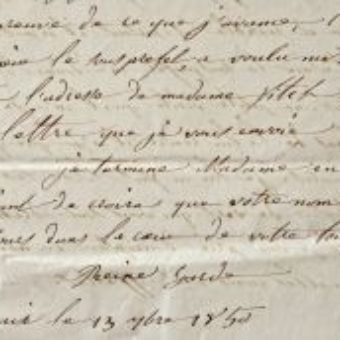 preuve de ce que j'avance, l
le sous prefet, a voulu me
l'adresse de madame
lettre que je vous envoie
je termine Madame en
de croire que votre nom
dans le cœur de votre
Reine Garde
le 13 9bre 1850